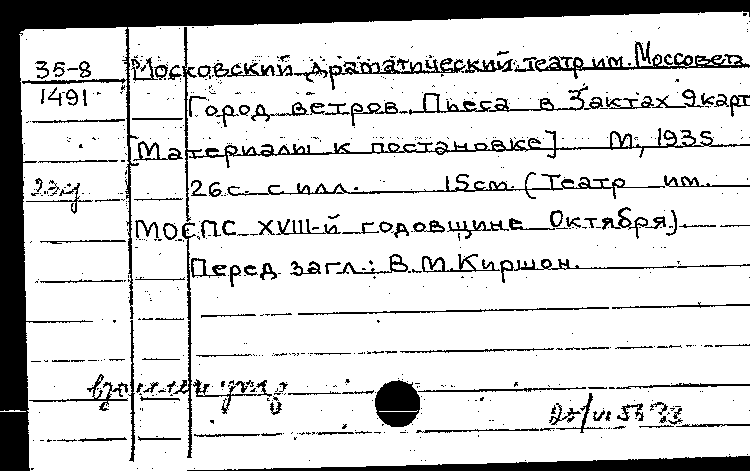 35-8 Московский драматический театр им. Моссовета
1491 Город ветров. Пьеса в 3актах 9карт
[Материалы к постановке] М., 1935
26с. с илл. 15см. (Театр им.
МОСПС XVIII-й годовщине Октября).
Перед загл.: В.М.Киршон.